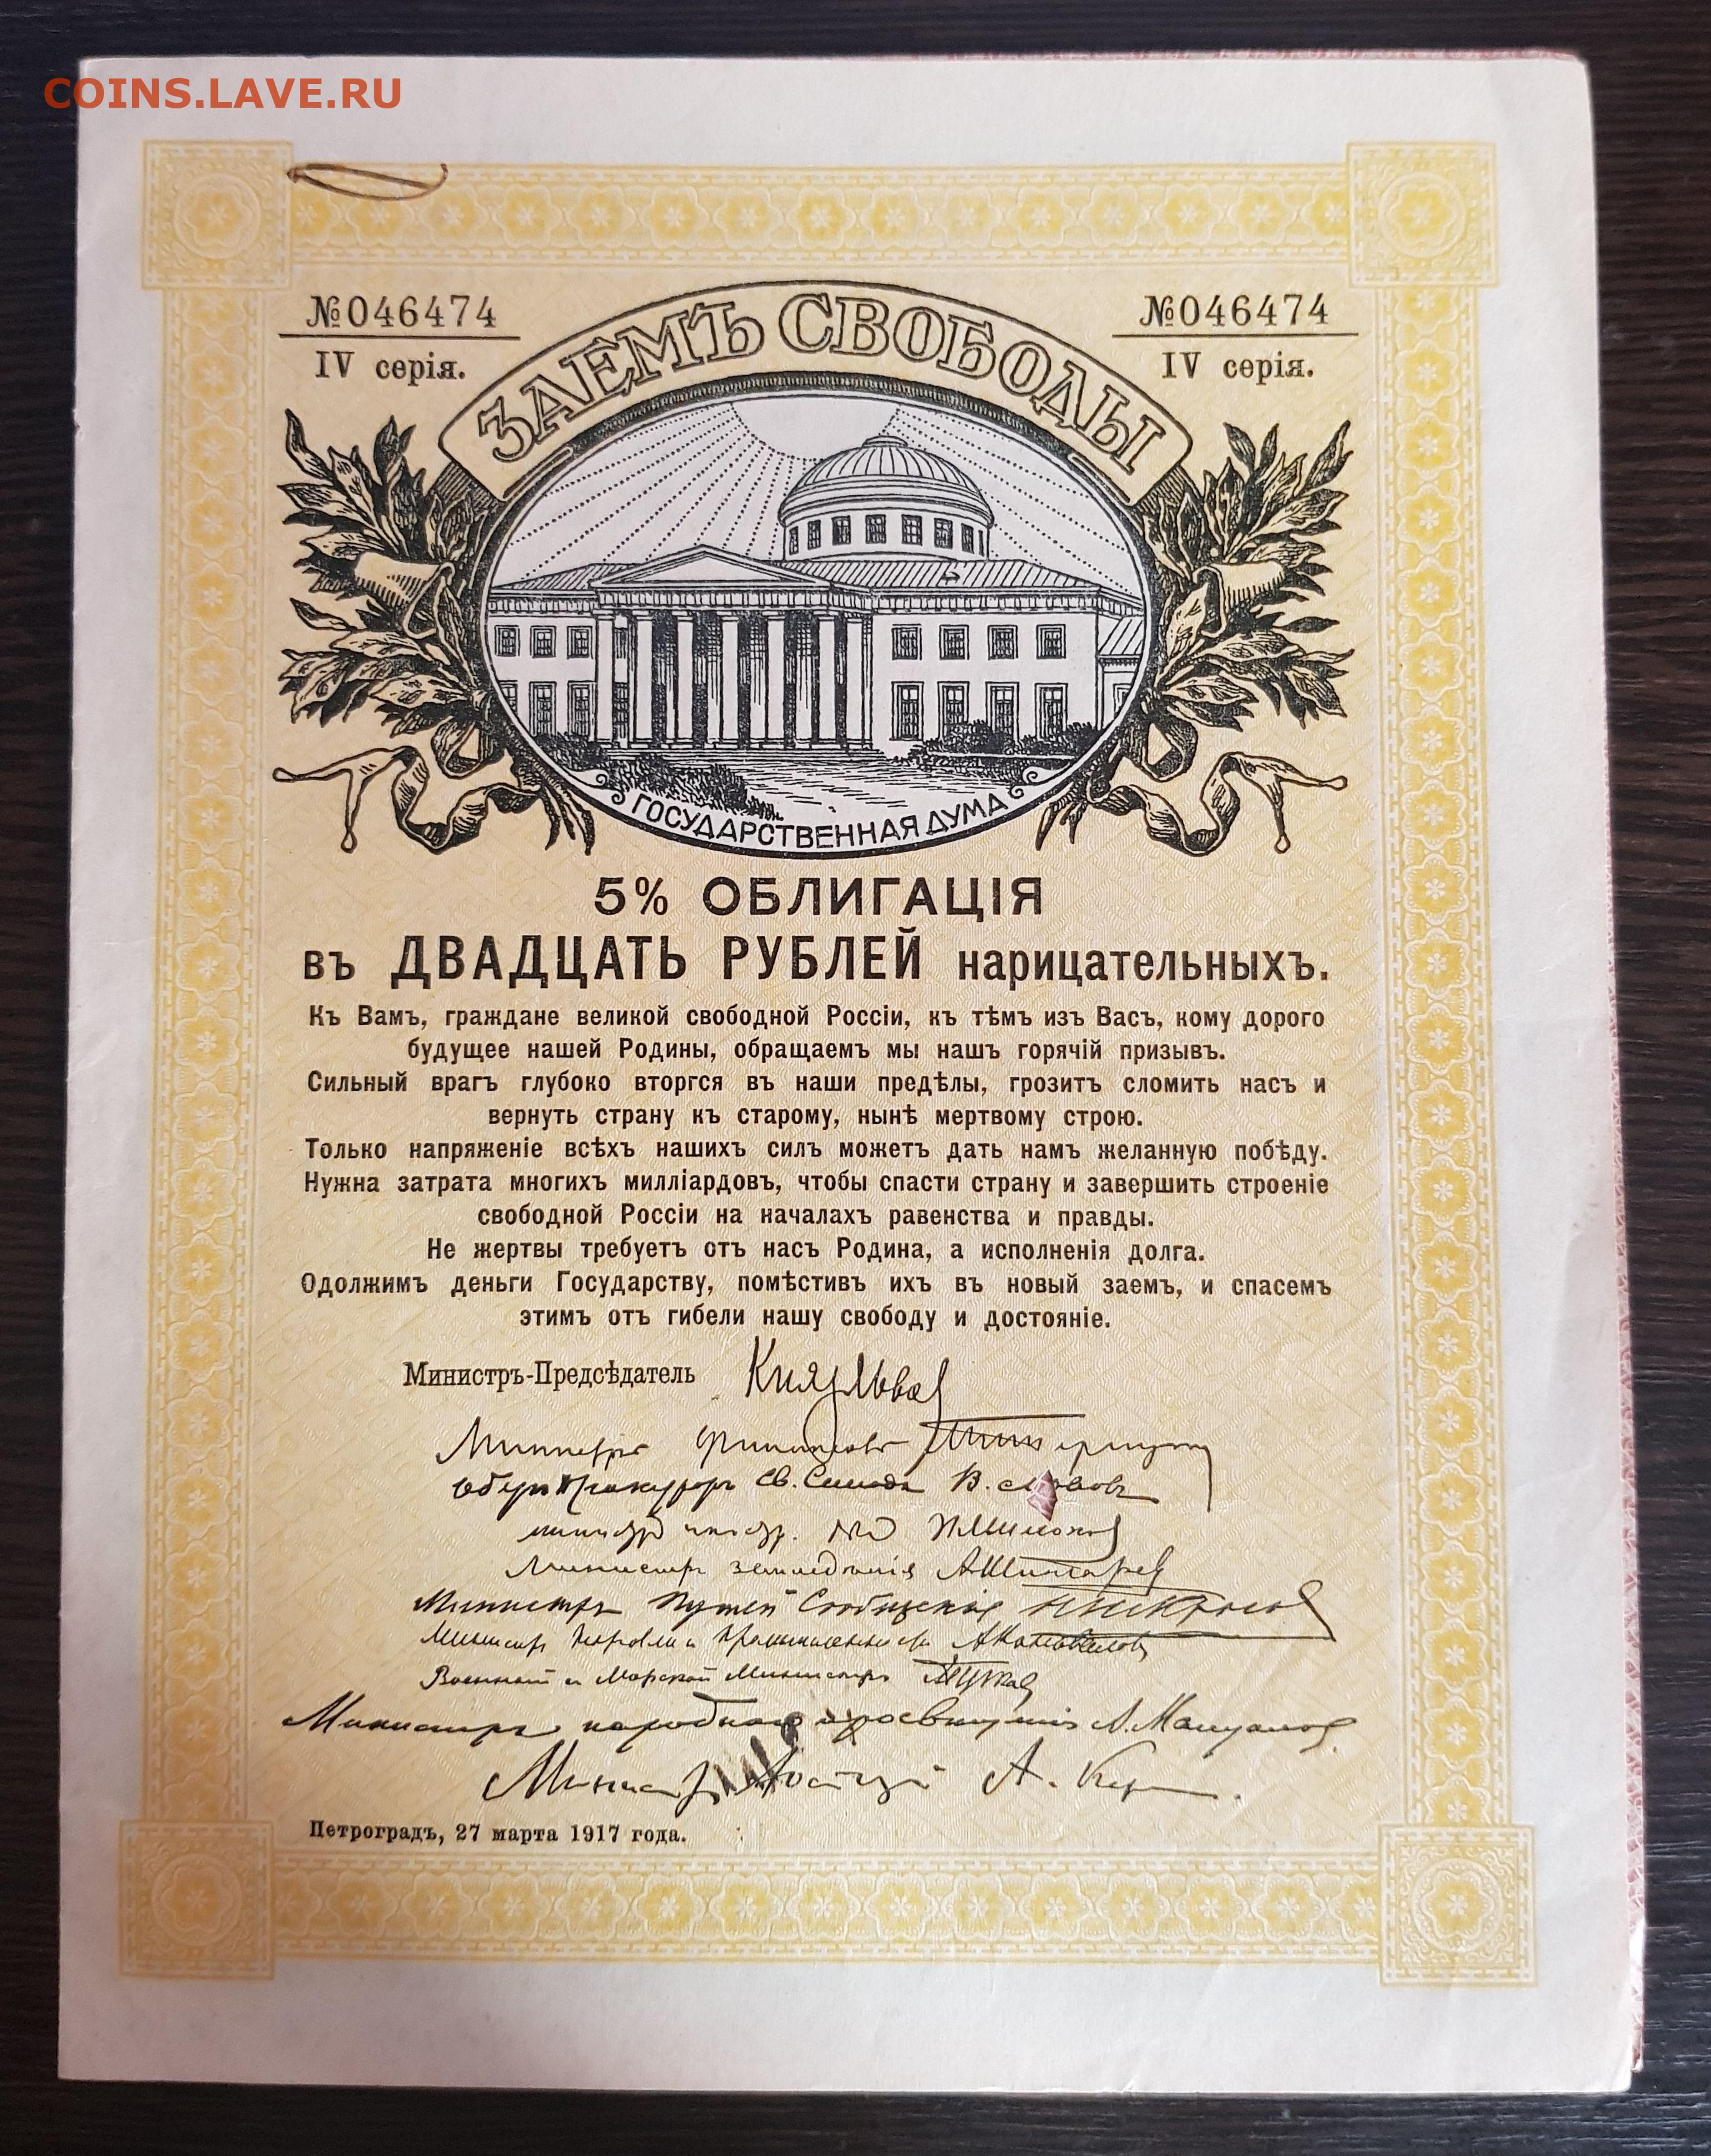 COINS.LAVE.RU
№046474
IV серія.
№046474
IV серія.
ЗАЕМЪ СВОБОДЫ
ГОСУДАРСТВЕННАЯ ДУМА
5% ОБЛИГАЦІЯ
въ ДВАДЦАТЬ РУБЛЕЙ нарицательныхъ.
Къ Вамъ, граждане великой свободной Россіи, къ тѣмъ изъ Васъ, кому дорого
будущее нашей Родины, обращаемъ мы нашъ горячій призывъ.
Сильный врагъ глубоко вторгся въ наши предѣлы, грозитъ сломить насъ и
вернуть страну къ старому, нынѣ мертвому строю.
Только напряженіе всѣхъ нашихъ силъ можетъ дать намъ желанную побѣду.
Нужна затрата многихъ милліардовъ, чтобы спасти страну и завершить строеніе
свободной Россіи на началахъ равенства и правды.
Не жертвы требуетъ отъ насъ Родина, а исполненія долга.
Одолжимъ деньги Государству, помѣстивъ ихъ въ новый заемъ, и спасемъ
этимъ отъ гибели нашу свободу и достояніе.
Министръ-Предсѣдатель Князь Львов
Министръ финансовъ
Оберъ Прокуроръ Св. Синода В. Львовъ
министр
Министръ земледѣлія А Шингарев
Министръ Путей Сообщенія
Министръ Торговли и Промышленности А Коновалов
Военный и Морской Министръ
Министръ народнаго просвѣщенія А. Мануйлов.
Министр Юстиціи А. Кер
Петроградъ, 27 марта 1917 года.